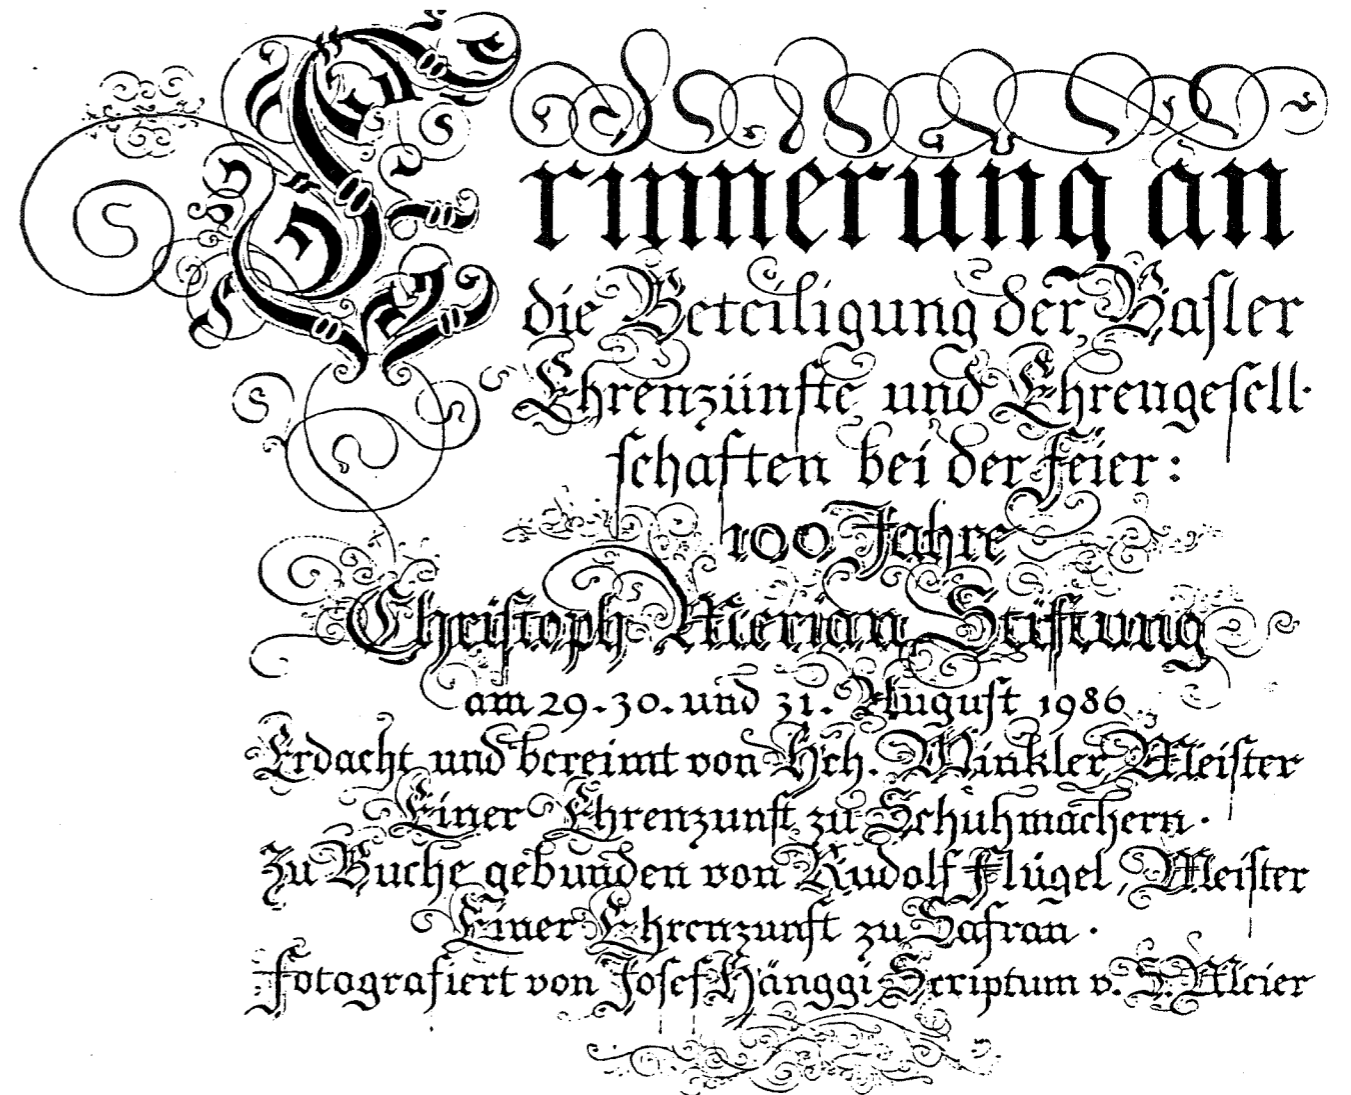 Erinnerung an
die Beteiligung der Basler
Ehrenzünfte und Ehrengesell-
schaften bei der Feier:
100 Jahre
Christoph Merian Stiftung
am 29. 30. und 31. August 1986
Erdacht und bereimt von Hch. Winkler, Meister
Einer Ehrenzunft zu Schuhmachern.
Zu Buche gebunden von Rudolf Flügel, Meister
Einer Ehrenzunft zu Safran.
Fotografiert von Josef Hänggi, Scriptum v. S. Meier